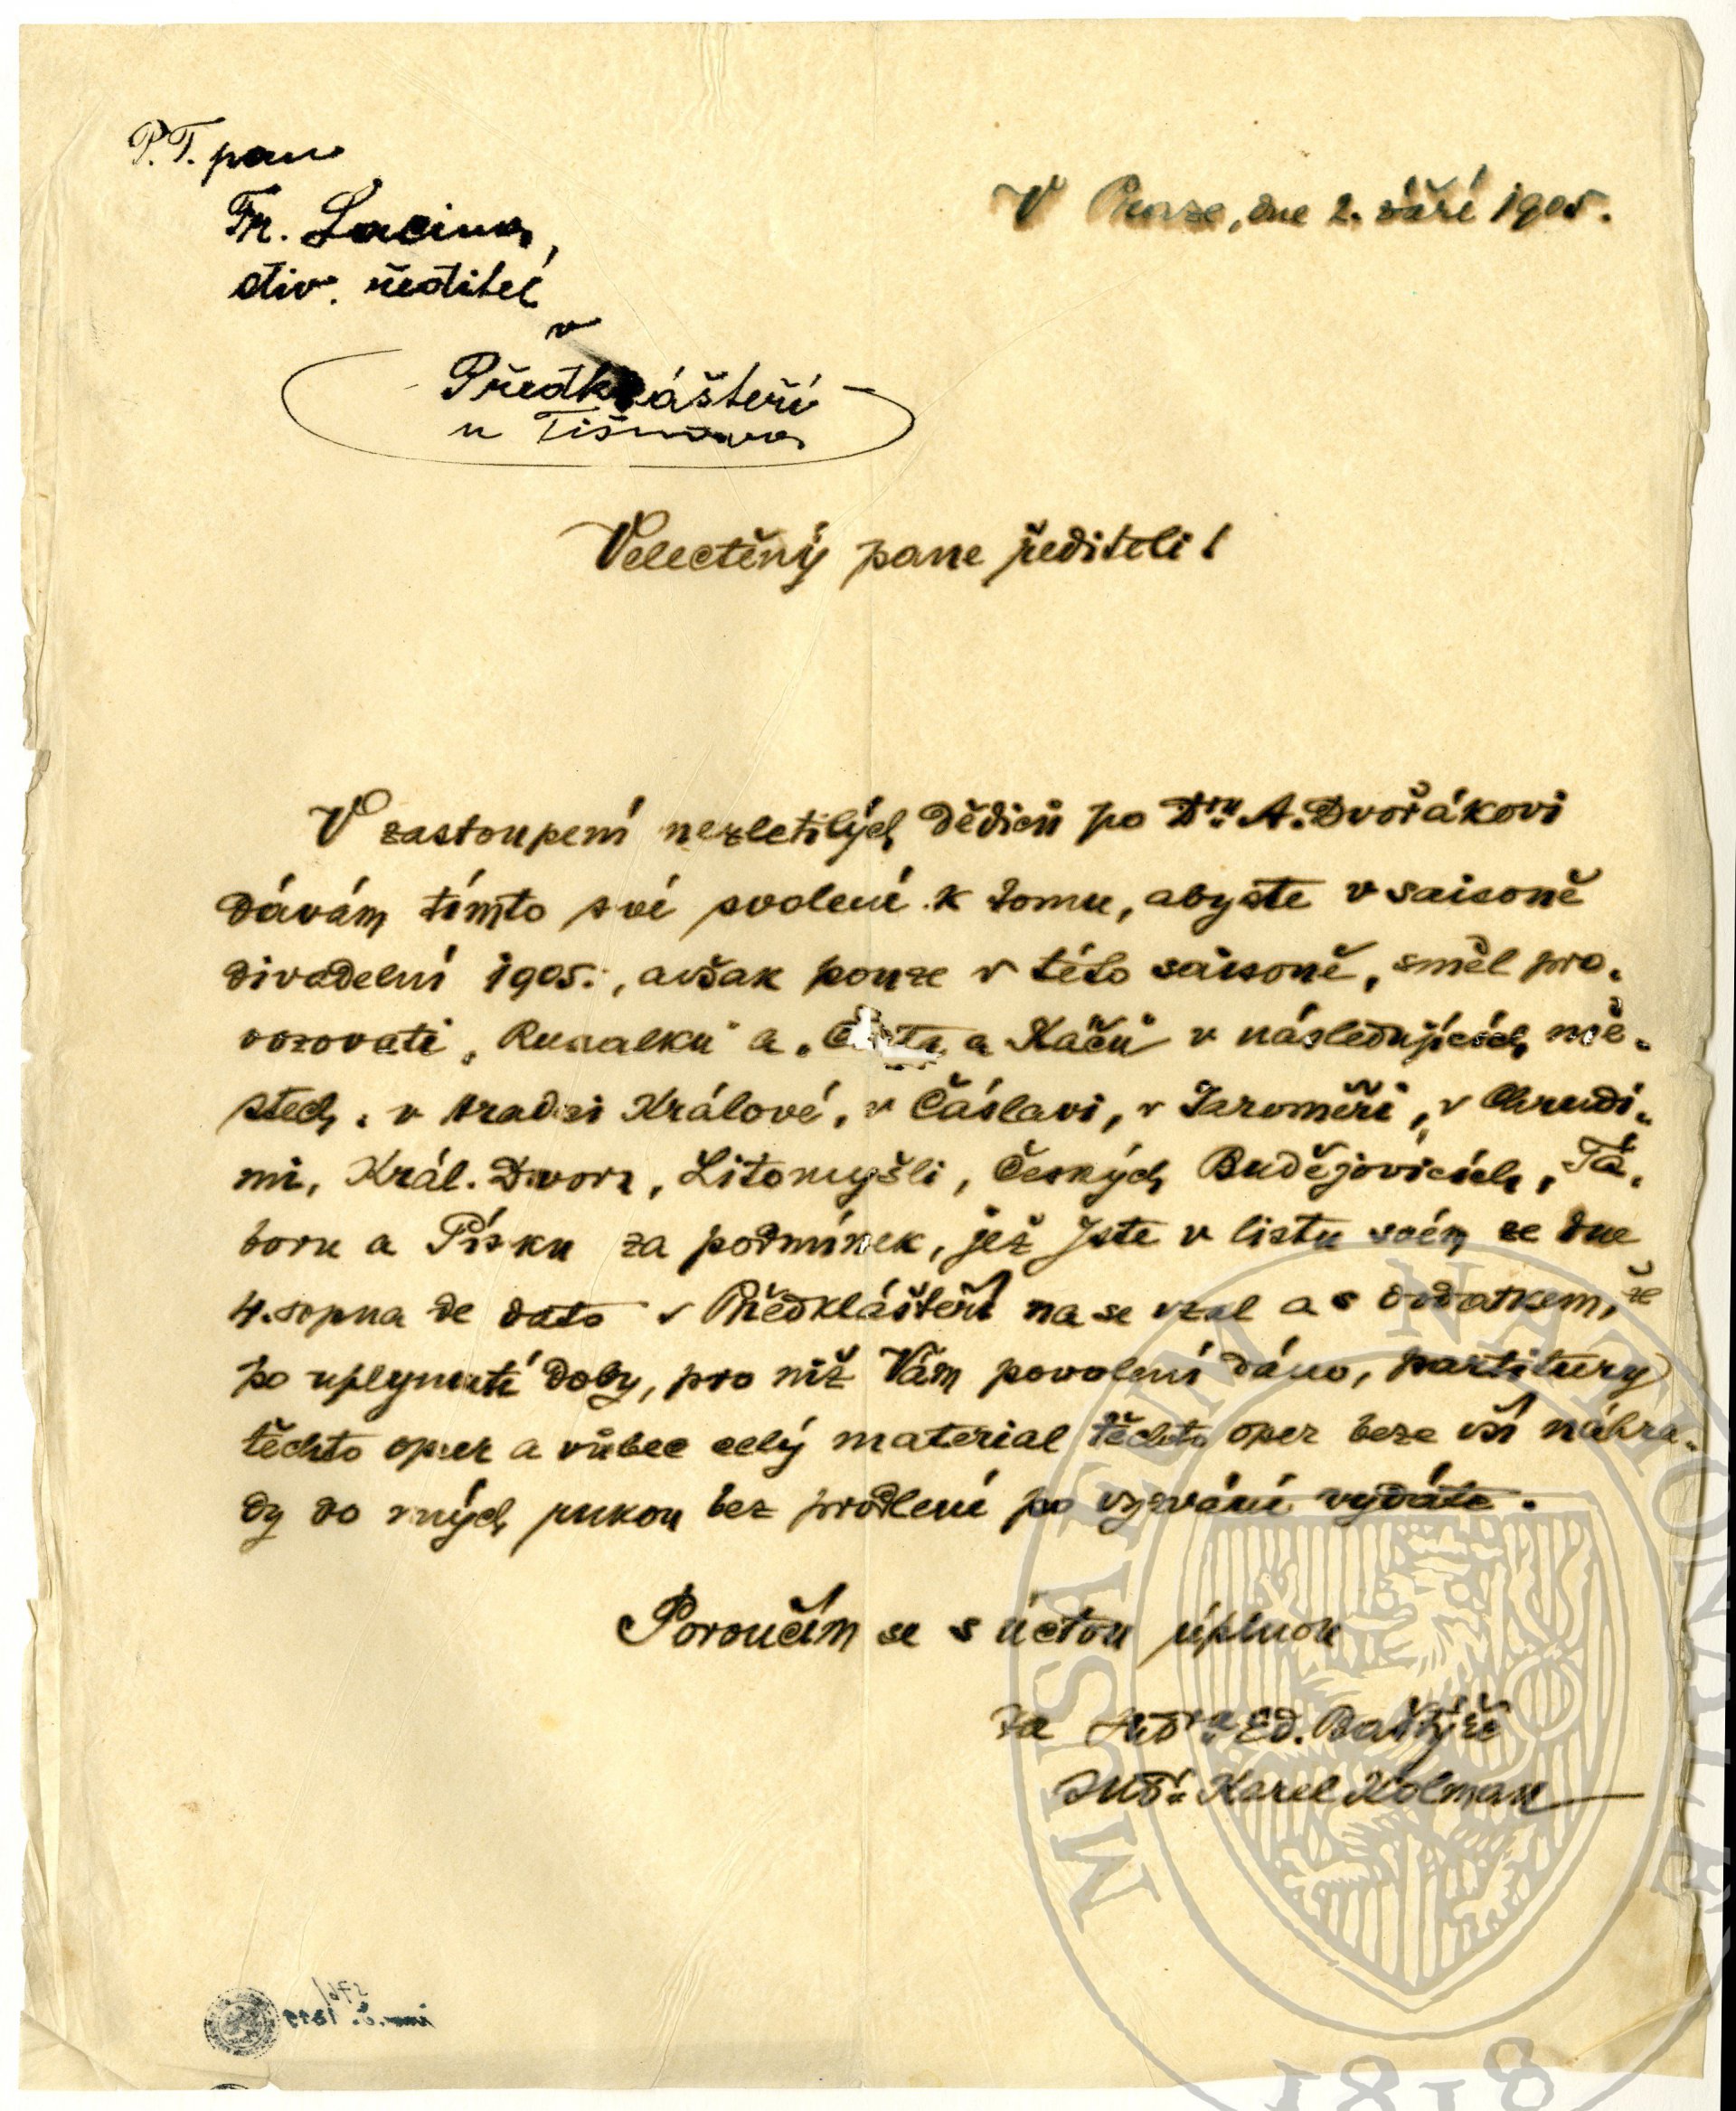 P.T. pan
Fr. Lacina,
div. ředitel
v
Předklášteří
u Tišnova
V Praze, dne 2. září 1905.
Velectěný pane řediteli!
V zastoupení nezletilých dědiců po Dru A. Dvořákovi
dávám tímto své svolení k tomu, abyste v saisoně
divadelní 1905., avšak pouze v této saisoně, směl pro-
vozovati „Rusalku" a „Čerta a Káču" v následujících mě-
stech: v Hradci Králové, v Čáslavi, v Jaroměři, v Chrudi-
mi, Král. Dvoře, Litomyšli, Českých Budějovicích, Tá-
boru a Písku za podmínek, jež jste v listu svém ze dne
4. srpna de dato v Předklášteří na se vzal a s dodatkem, že
po uplynutí doby, pro niž Vám povolení dáno, partitury
těchto oper a vůbec celý material těchto oper beze vší náhra-
dy do mých rukou bez prodlení po vyzvání vydáte.
Poroučím se s úctou úplnou
Za JUDra Ed. Baštýře
JUDr. Karel Kolman
inv. č. 1899
576/
MUSAEUM NATIONALE
1818